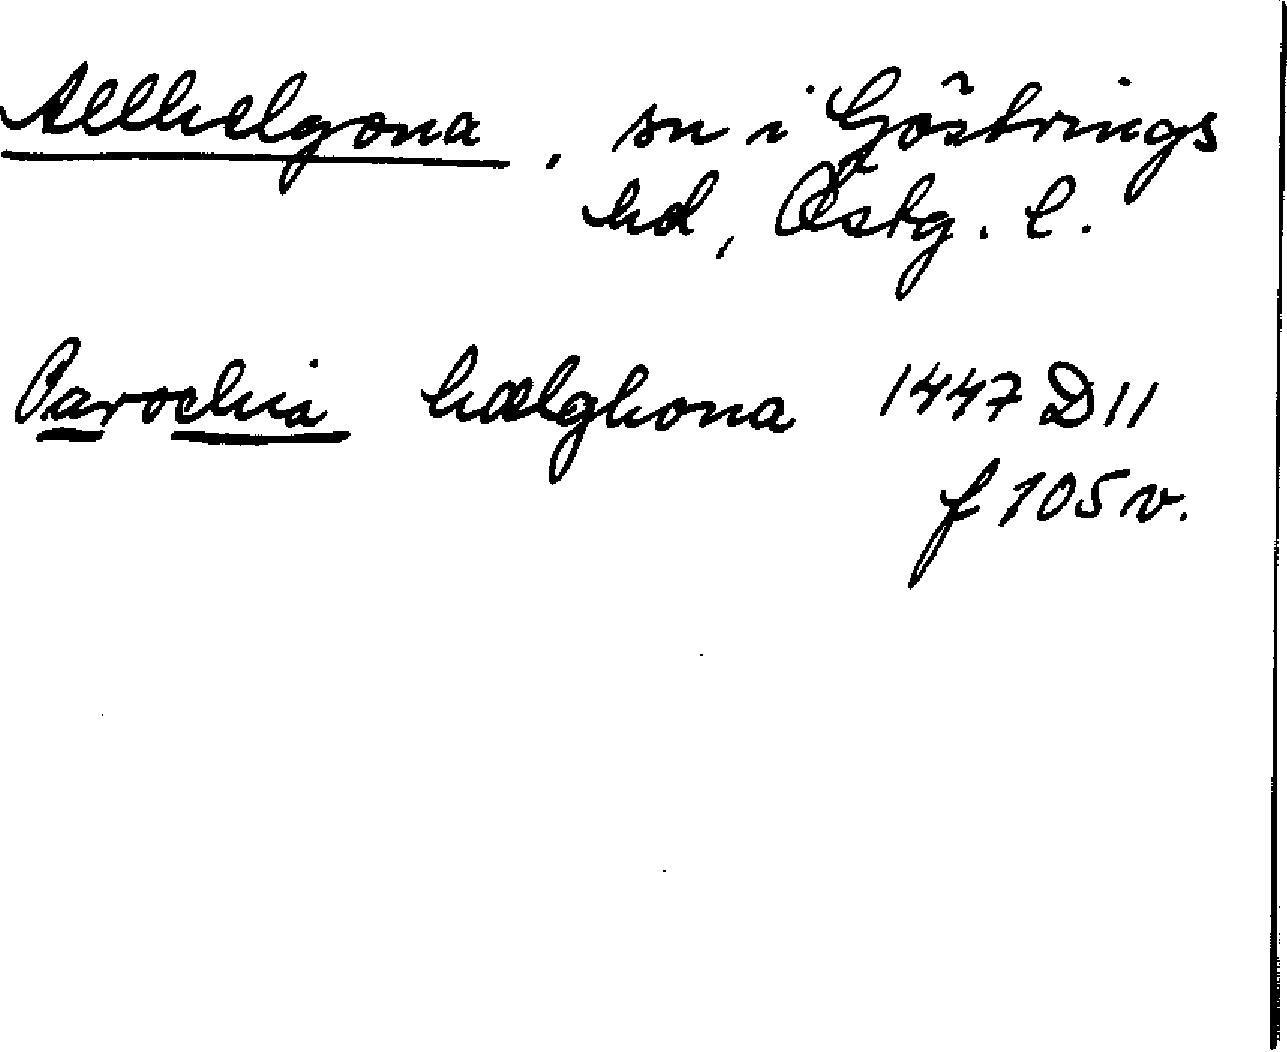 Allhelgona, sn i Göstrings
hd, Östg. l.
Parochia hælghona 1447 D 11
f 105 v.